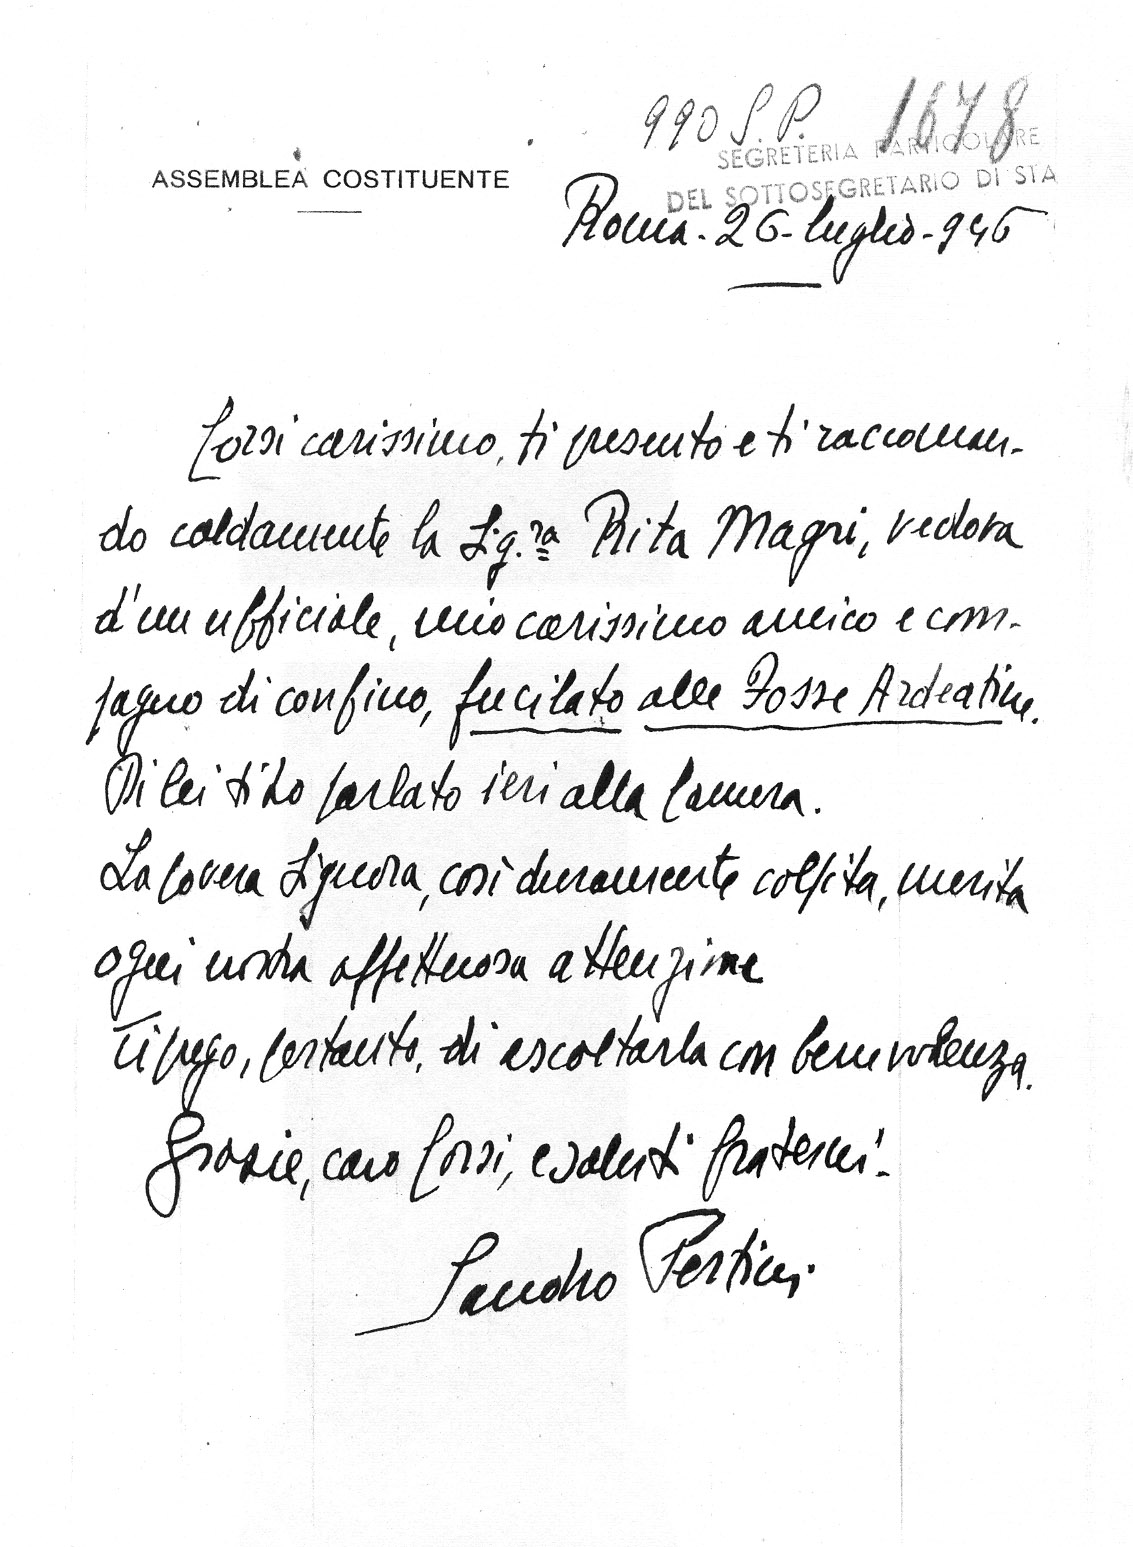 990 S.P. 1678
SEGRETERIA PARTICOLARE
ASSEMBLEA COSTITUENTE
DEL SOTTOSEGRETARIO DI STA
Roma - 26 - luglio - 946
Corsi carissimo, ti presento e ti raccoman-
do caldamente la Sig.ra Rita Magri, vedova
d'un ufficiale, mio carissimo amico e com-
pagno di confino, fucilato alle Fosse Ardeatine.
Di lei ti ho parlato ieri alla Camera.
La povera Signora, così duramente colpita, merita
ogni nostra affettuosa attenzione
Ti prego, pertanto, di ascoltarla con benevolenza.
Grazie, caro Corsi, e saluti fraterni -
Sandro Pertini